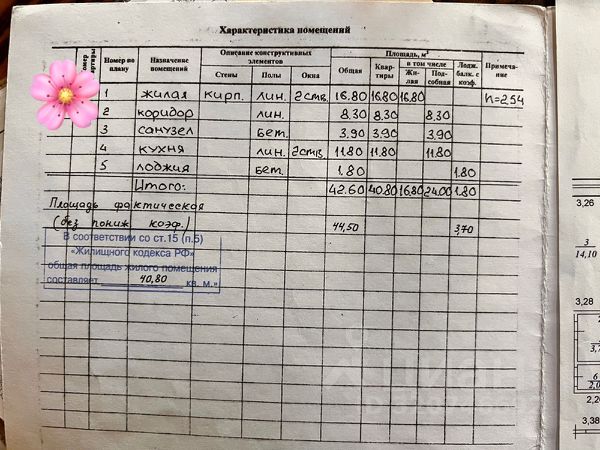 Характеристика помещений
Номер по плану | Назначение помещений | Описание конструктивных элементов | Площадь, м² | Примечание
Стены | Полы | Окна | Общая | Квартиры | в том числе | Лодж. балк. с коэф.
Жилая | Подсобная
1 жилая кирп. лин. 2ств. 16.80 16.80 16.80 h=2,54
2 коридор лин. 8.30 8.30 8.30
3 санузел бет. 3.90 3.90 3.90
4 кухня лин. 2ств. 11.80 11.80 11.80
5 лоджия бет. 1.80 1.80
Итого: 42.60 40.80 16.80 24.00 1.80
Площадь фактическая
(без пониж коэф.) 44,50 3,70
В соответствии со ст.15 (п.5)
«Жилищного кодекса РФ»
общая площадь жилого помещения
составляет 40,80 кв. м.»
3,26
3
14,10
3,28
3,7
6
2,0
2,20
3,38